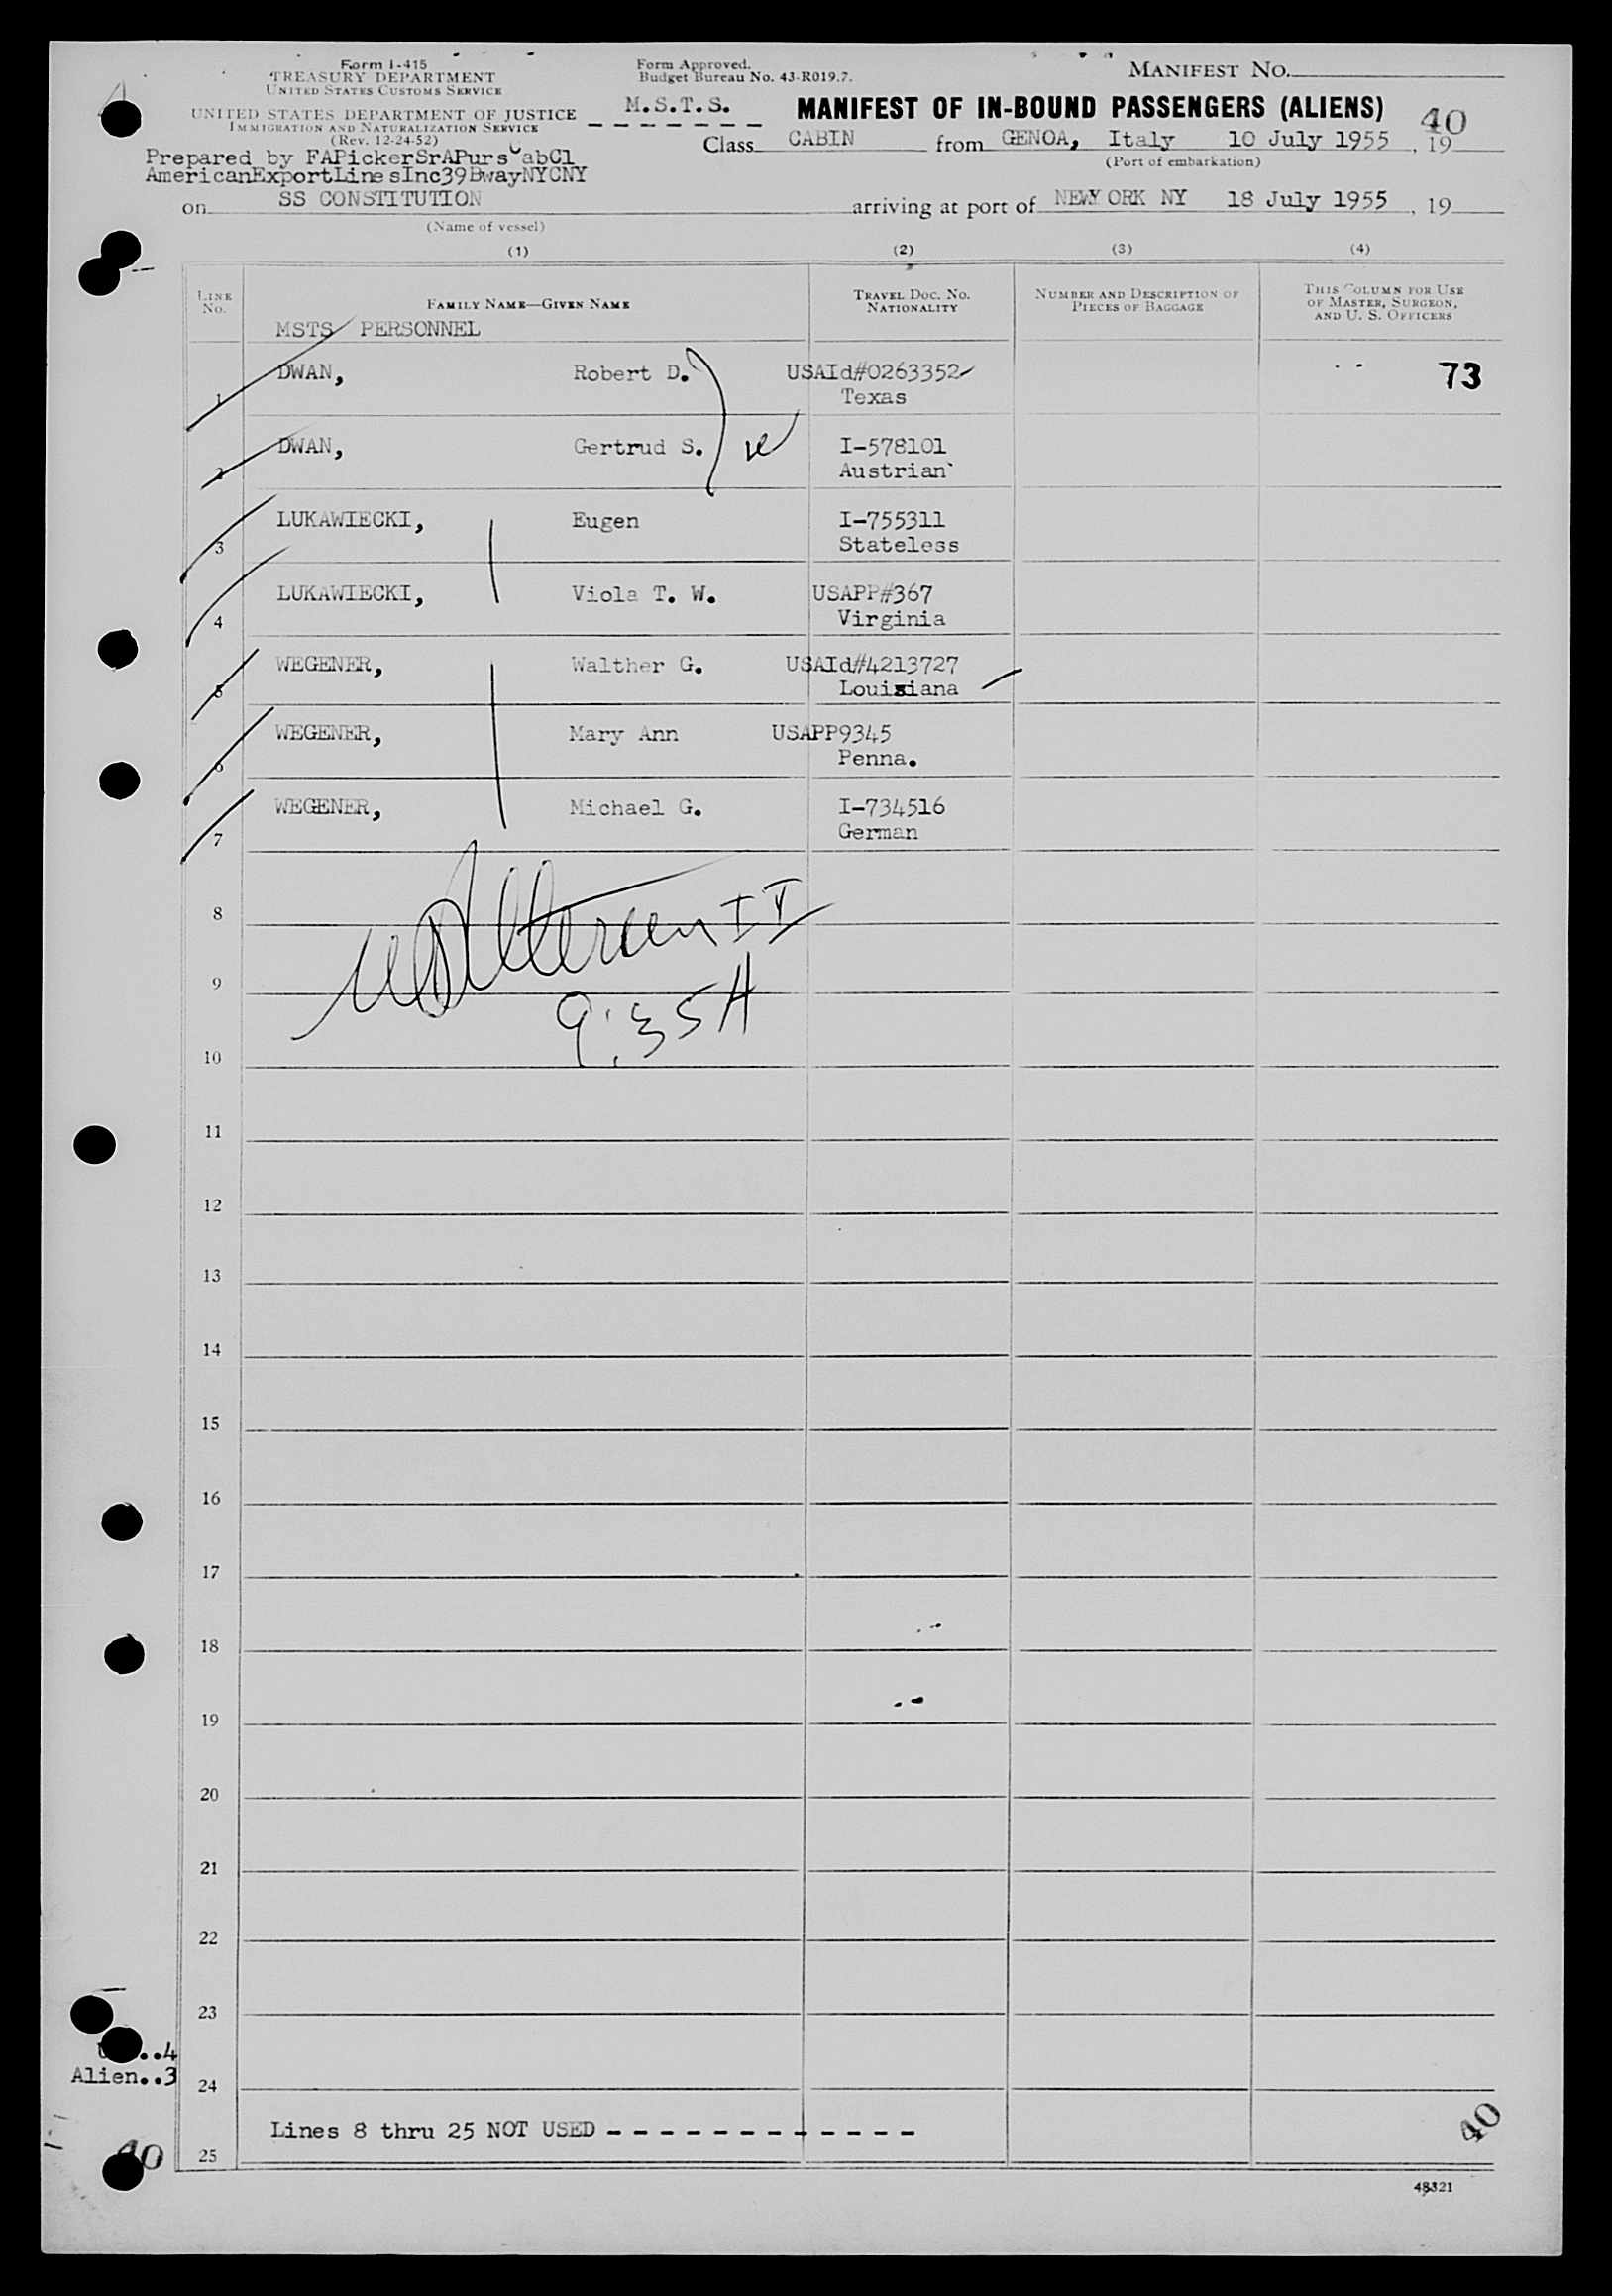 Form I-415
TREASURY DEPARTMENT
UNITED STATES CUSTOMS SERVICE
UNITED STATES DEPARTMENT OF JUSTICE
IMMIGRATION AND NATURALIZATION SERVICE
(Rev. 12-24-52)
Prepared by FAPickerSrAPurs CabCl
AmericanExportLinesInc39BwayNYCNY
Form Approved.
Budget Bureau No. 43-R019.7.
MANIFEST NO.
M.S.T.S. MANIFEST OF IN-BOUND PASSENGERS (ALIENS) 40
Class CABIN from GENOA, Italy 10 July 1955, 19
(Port of embarkation)
on SS CONSTITUTION arriving at port of NEWYORK NY 18 July 1955, 19
(Name of vessel)
(1) (2) (3) (4)
LINE No. FAMILY NAME—GIVEN NAME TRAVEL DOC. NO. NATIONALITY NUMBER AND DESCRIPTION OF PIECES OF BAGGAGE THIS COLUMN FOR USE OF MASTER, SURGEON, AND U. S. OFFICERS
MSTS PERSONNEL
1 DWAN, Robert D. USAId#0263352 73
Texas
2 DWAN, Gertrud S. I-578101
Austrian
3 LUKAWIECKI, Eugen I-755311
Stateless
4 LUKAWIECKI, Viola T. W. USAPP#367
Virginia
5 WEGENER, Walther G. USAId#4213727
Louisiana
6 WEGENER, Mary Ann USAPP9345
Penna.
7 WEGENER, Michael G. I-734516
German
8
9
9:35A
10
11
12
13
14
15
16
17
18
19
20
21
22
23
..4
Alien..3
24
Lines 8 thru 25 NOT USED - - - - - - - - - - - -
25
40
40
48321